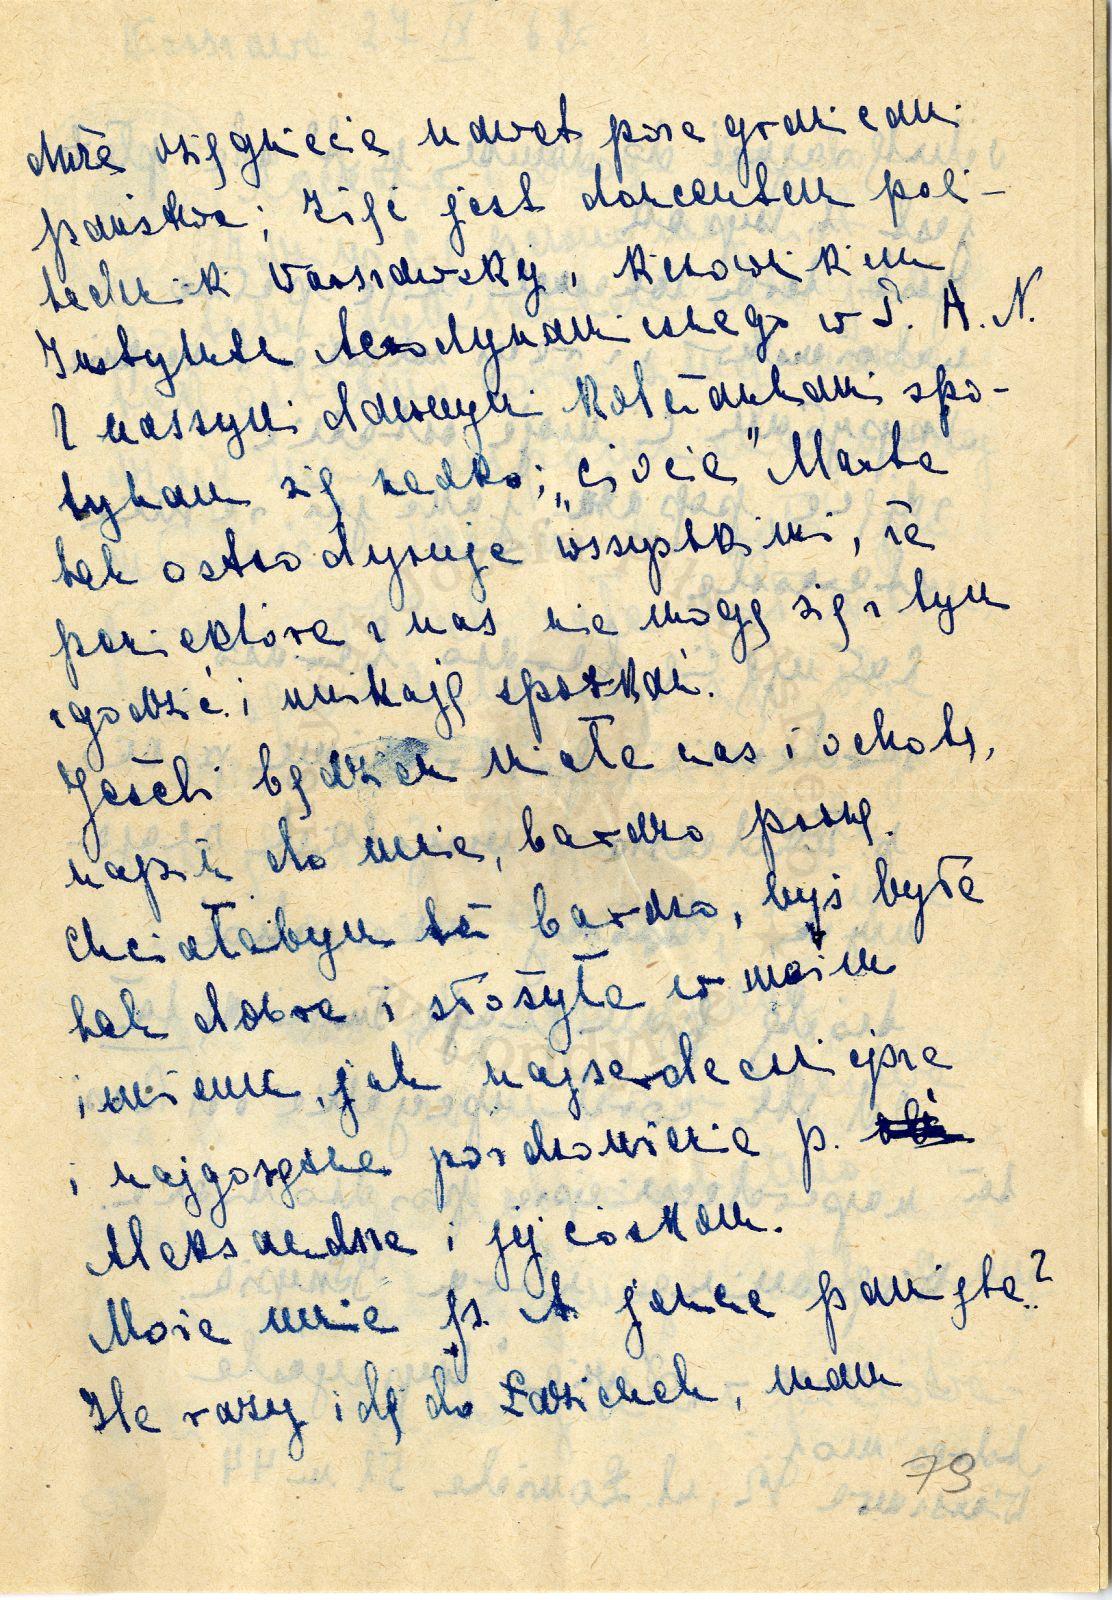 duże osiągnięcia nawet poza granicami
państwa; Ziść jest docentem poli-
techniki Warszawskiej, kierownikiem
Instytutu Aerodynamicznego w P. A. N.
Z naszymi dawnymi koleżankami spo-
tykam się rzadko; „ciocia” Marta
tak ostro dyryguje wszystkimi, że
poniektóre z nas nie mogą się z tym
zgodzić i unikają spotkań.
Jeśli będziesz miała czas i ochotę,
napisz do mnie, bardzo proszę.
Chciałabym też bardzo, byś była
tak dobra i złożyła w moim
imieniu, jak najserdeczniejsze
i najgorętsze pozdrowienia p.
Aleksandrze i jej córkom.
Może mnie p. A. jeszcze pamięta?
Ile razy idę do Łazienek, mam
79